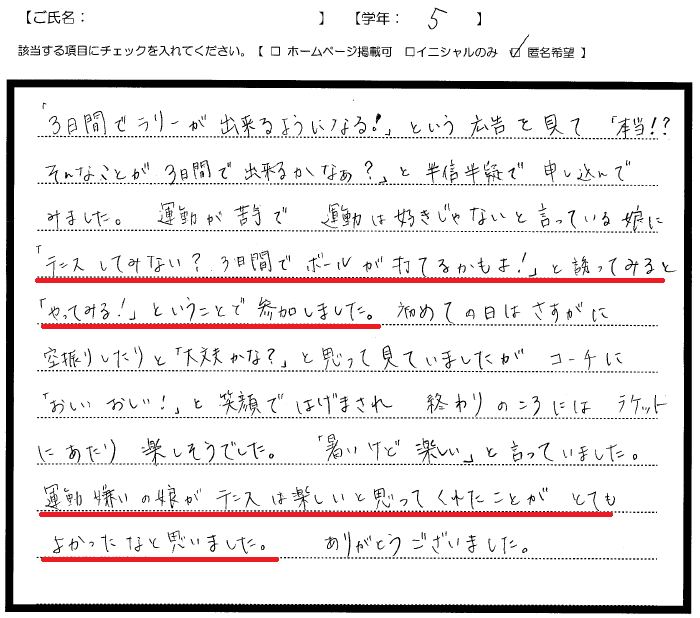 【ご氏名： 】 【学年： 5 】
該当する項目にチェックを入れてください。【 □ ホームページ掲載可 □イニシャルのみ ☑ 匿名希望 】
「3日間でラリーが出来るようになる!」という広告を見て「本当!?
そんなことが3日間で出来るかなぁ?」と半信半疑で申し込んで
みました。 運動が苦手で 運動は好きじゃないと言っている娘に
「テニスしてみない? 3日間でボールが打てるかもよ!」と誘ってみると
「やってみる!」ということで参加しました。 初めての日はさすがに
空振りしたりと「大丈夫かな?」と思って見ていましたが コーチに
「おしい おしい!」と笑顔ではげまされ 終わりのころには ラケット
にあたり 楽しそうでした。 「暑いけど楽しい」と言っていました。
運動嫌いの娘がテニスは楽しいと思ってくれたことが とても
よかったなと思いました。 ありがとうございました。